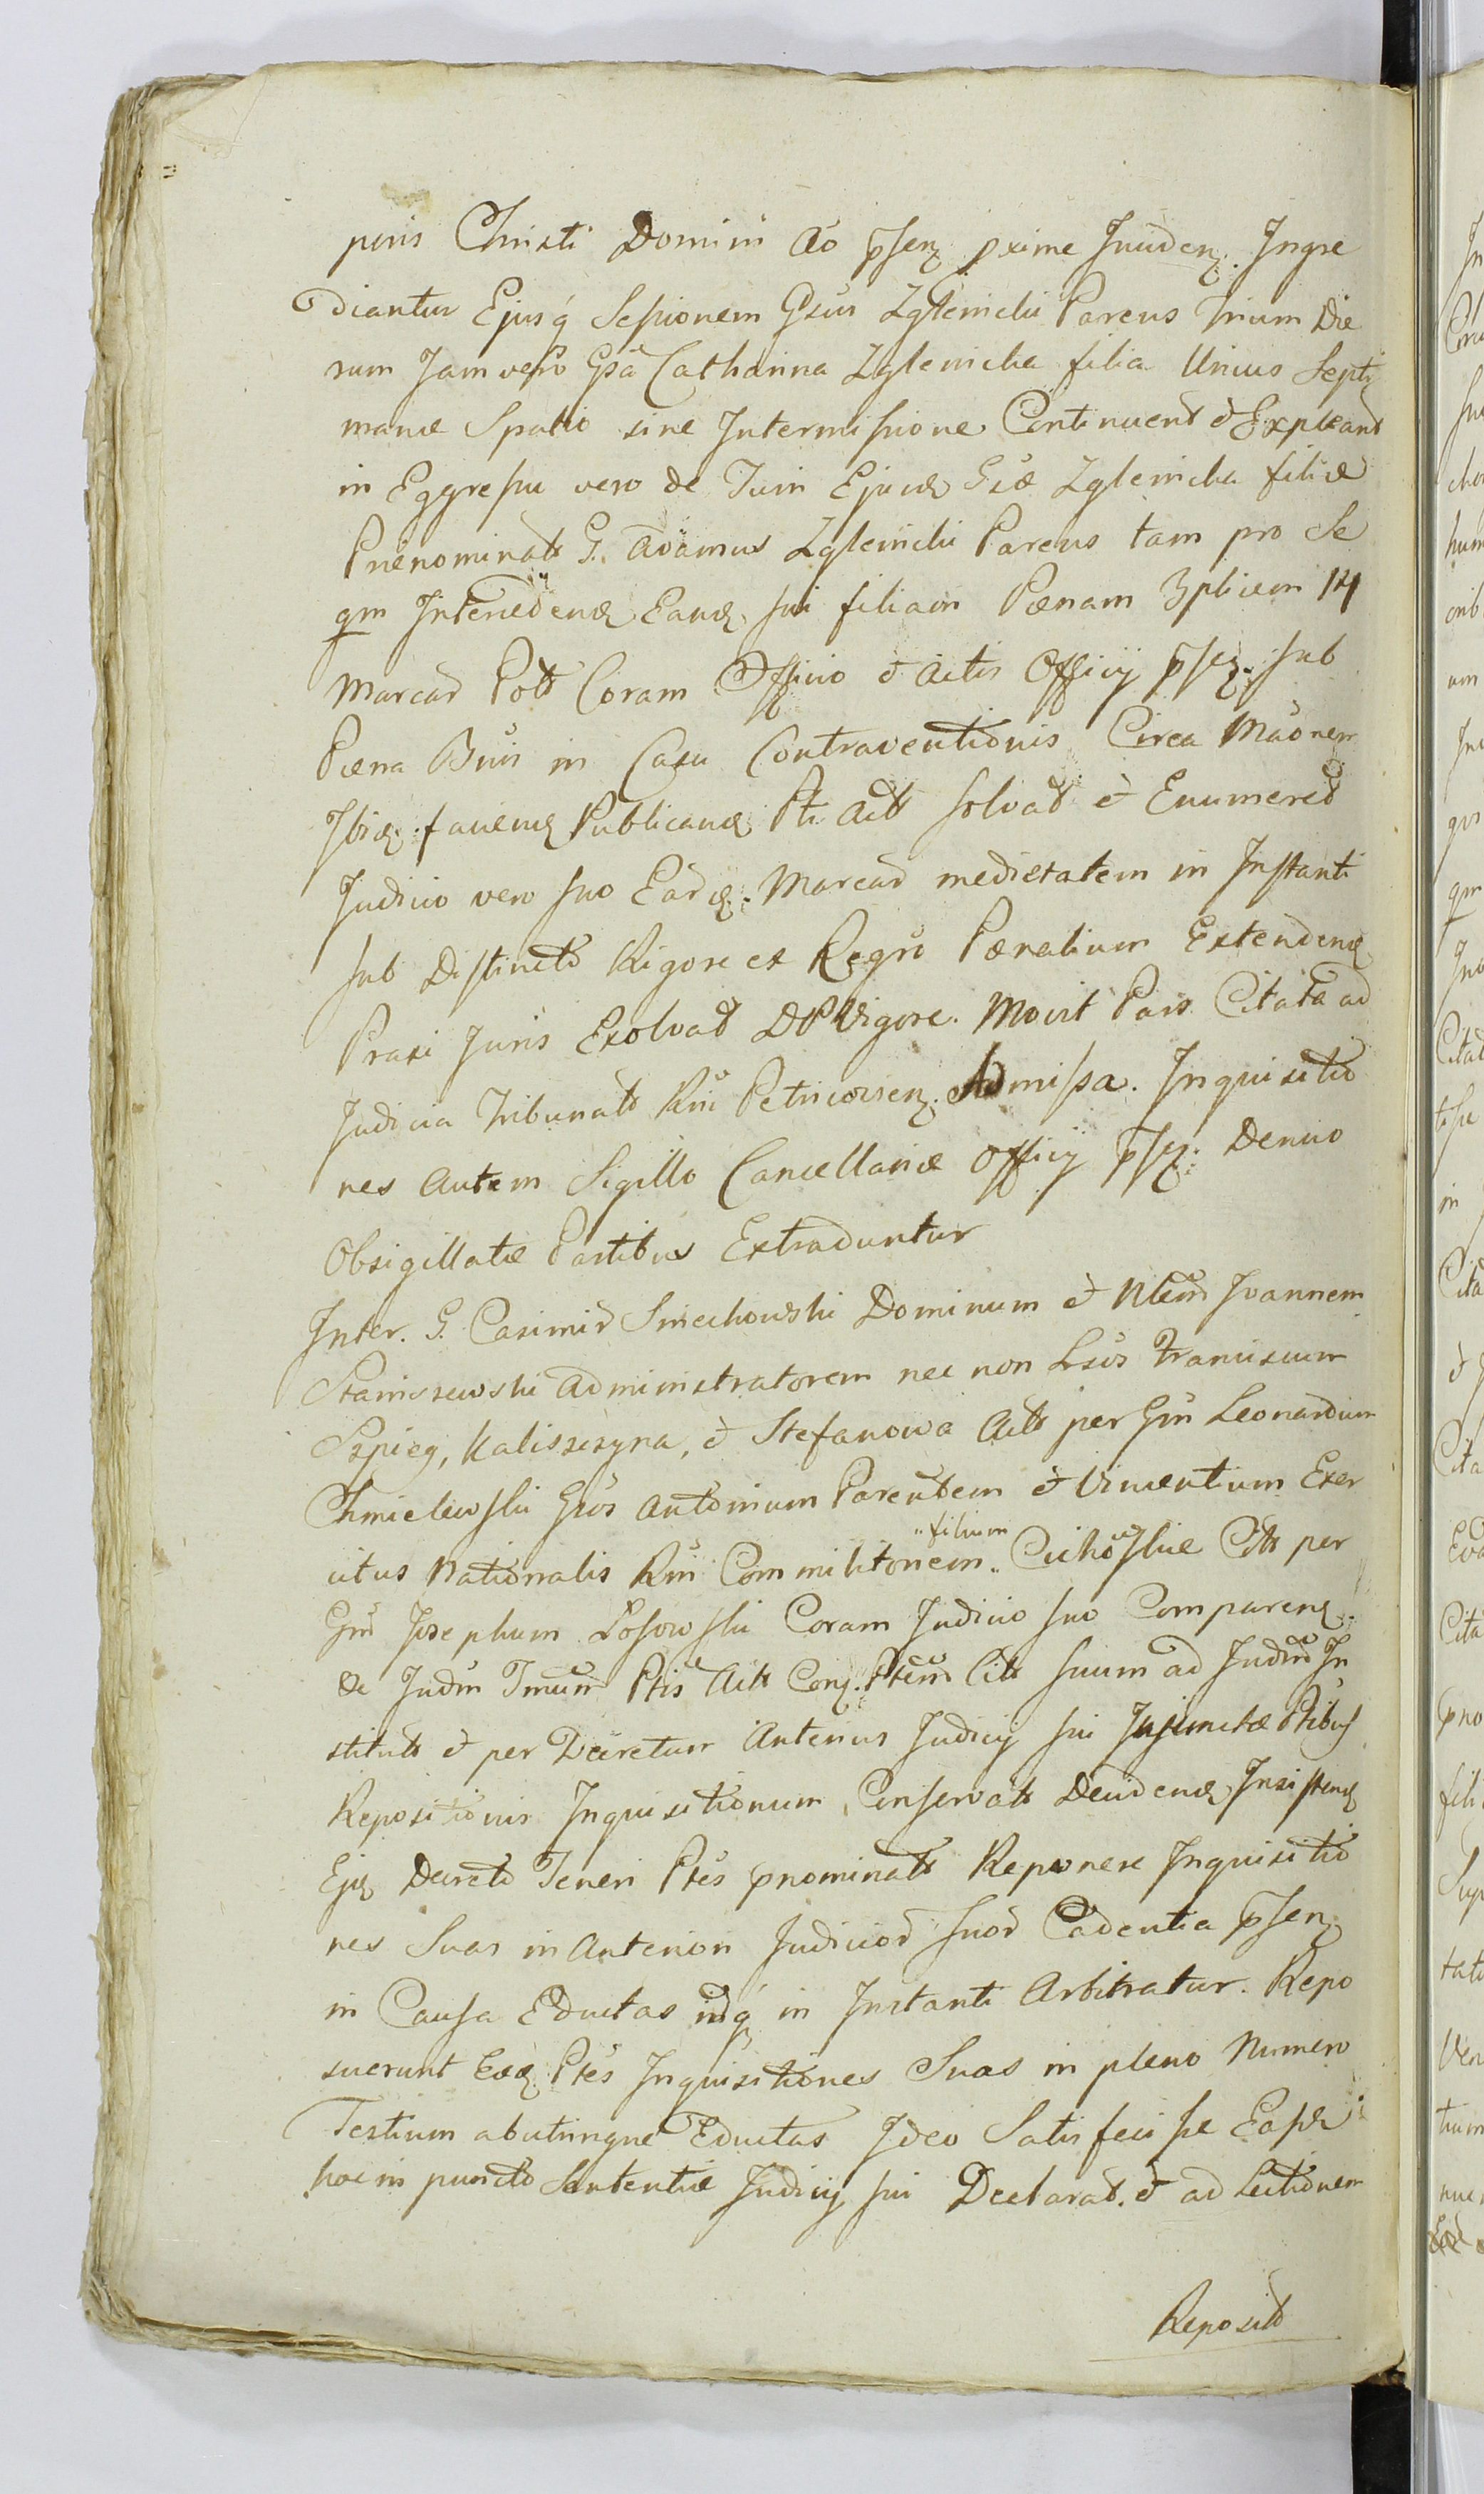 poris Christi Domini Ao pñsenz pxime Jnciden. Jngre
diantur Ejusq Sessionem Gsus Zglenicki Parens trium Die
rum Jam vero Gsa Catharina Zglenicka filia Unius Septi
manæ Spatio sine Jntermissione Continuent et Expleant
in Eggressu vero de Turri Ejusd Gsæ Zglenicka filiæ
Prænominats G. Adamus Zglenicki Parens tam pro Se
qm Jntercedend Eand sui filiam Pænam 3plicem 14
Marcar Pols Coram Officio et Actis Officij pñsen. sub
Pæna Bnis in Casu Contraventionis Circa Maonem
Jbid. facien Publicand Pti Acts solvat et Enumeret
Judicio vero suo Eard. Marcar medietatem in Jnstanti
sub Distincto Rigore ex Regro Pænalium Extendend
Praxi Juris Exolvat DP Vigore. Movit Pars Citata ad
Judicia Tribunals Rni Petricovien. Admissa. Jnquisitio
nes Autem Sigillo Cancellariæ Officij pñsen. Denuo
Obsigillatæ Partibus Extraduntur
Jnter. G. Casimir Smiechowski Dominum et Nlem Joannem
Staniszewski Administratorem nec non Lsos Franciscum
Szpieg, Kaliszczyna, et Stefanowa Acts per Gm Leonardum
Chmielewski Gsos Antonium Parentem et Vincentium Exer
citus Nationalis Rni Commilitonem "filium" Cichowskie Cits per
Gm Josephum Losowski Coram Judicio suo Comparen.
De Judm Tmum Ptis Acts Conj. Ptem Cits suum ad Judm Jn
stituts et per Decretum Anterius Judicij sui Jnjunctæ Ptibus
Repositionis Jnquisitionum, Conservats Decidend Jnsistend
Ejd Decreto Teneri Ptes pnominats Reponere Jnquisitio
nes Suas in Anteriori Judicior suor Cadentia pñsen
in Causa Eductas idq in Jnstanti Arbitratur. Repo
suerunt Eæd Ptes Jnquisitiones Suas in pleno Numero
Testium abutrinque Eductas Jdeo Satis fecisse Easd
hoc in puncto Sententiæ Judicij sui Declarat. et ad Lectionem
Reposits